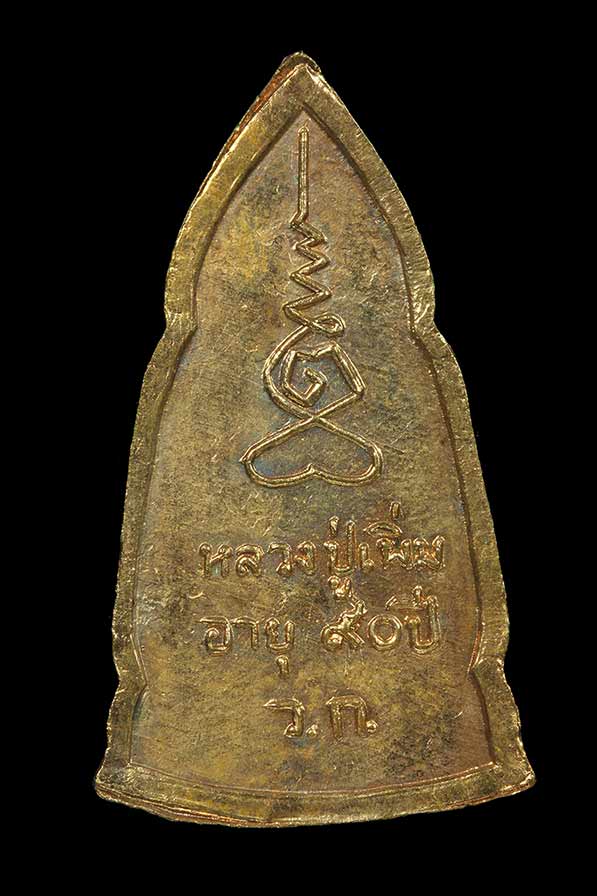 หลวงปู่เพิ่ม
อายุ ๙๐ ปี
ว.ก.